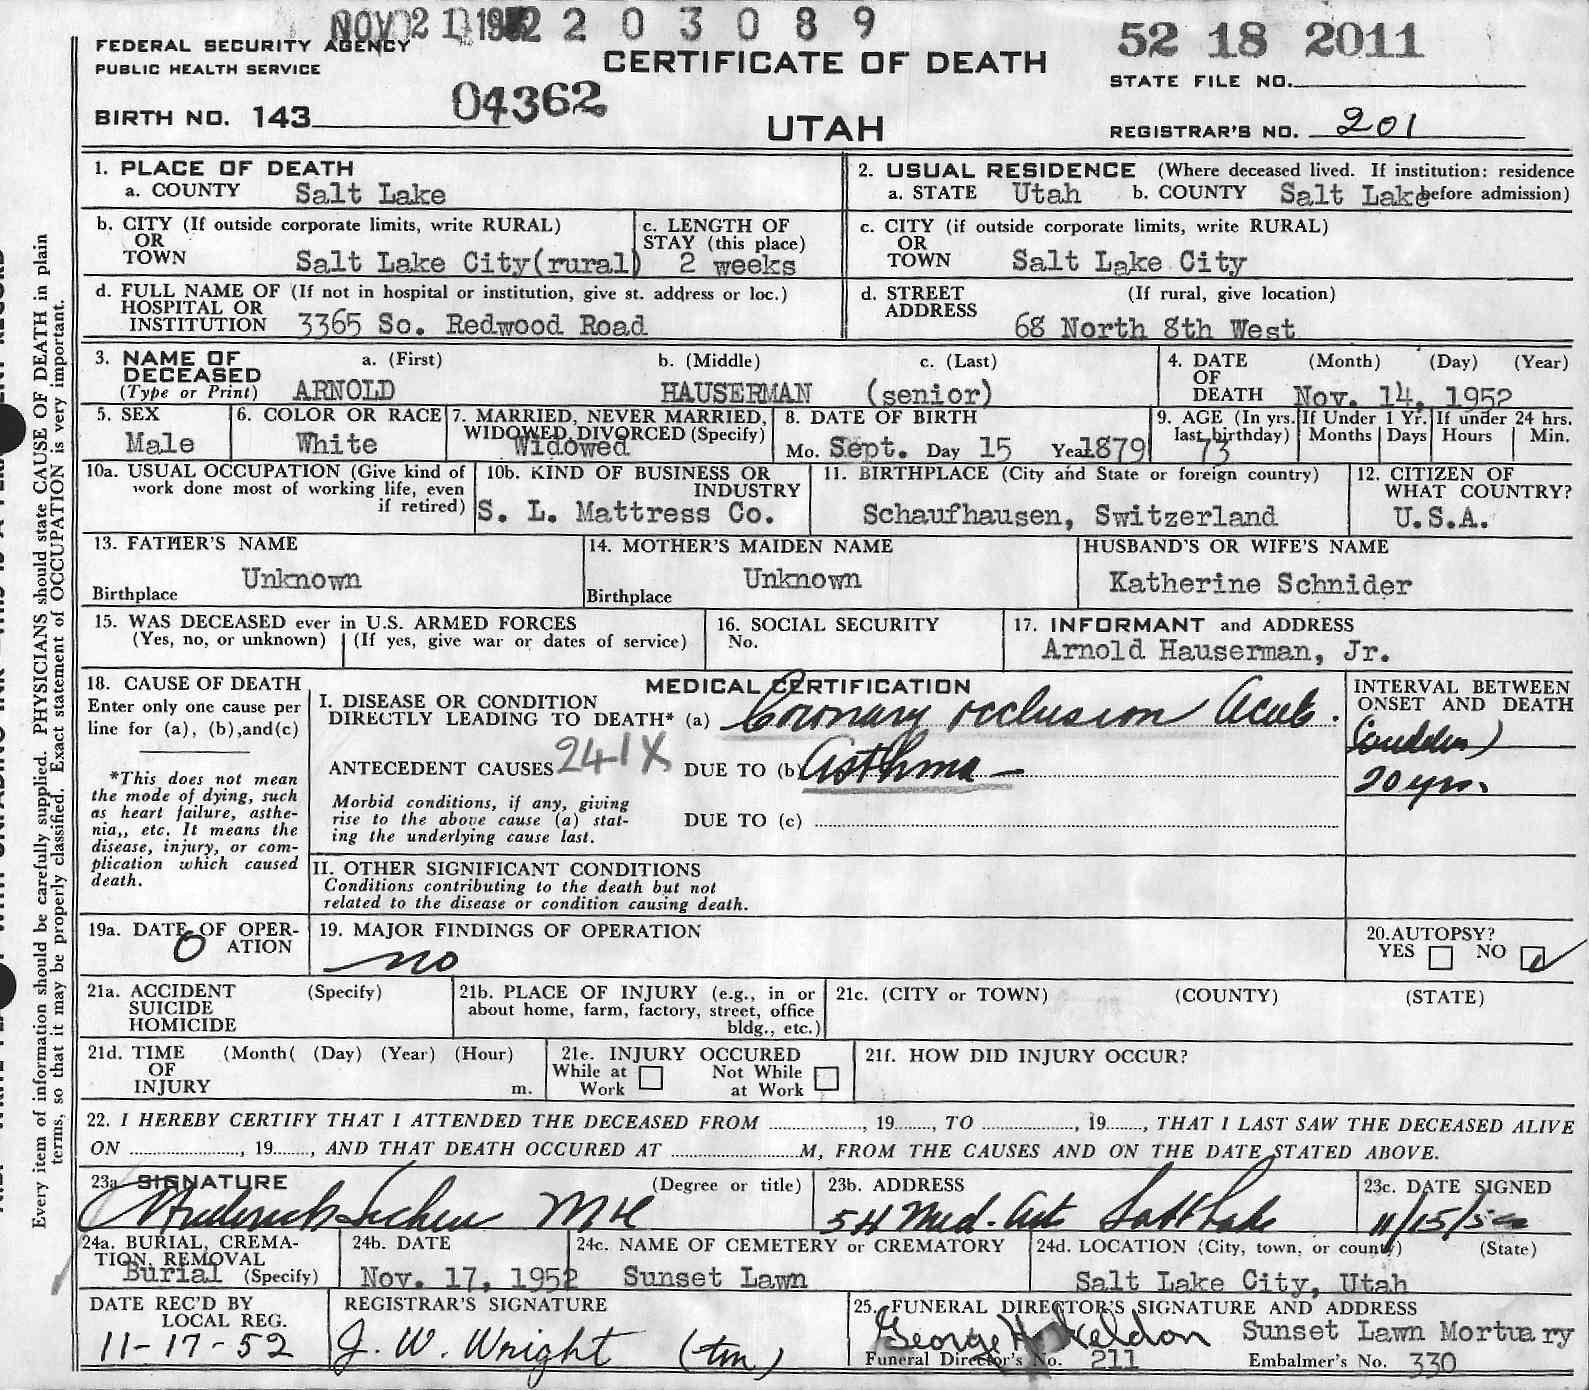 NOV 21 1952 2 0 3 0 8 9
52 18 2011
FEDERAL SECURITY AGENCY
PUBLIC HEALTH SERVICE
CERTIFICATE OF DEATH
STATE FILE NO.
BIRTH NO. 143 04362
UTAH
REGISTRAR'S NO. 201
1. PLACE OF DEATH
a. COUNTY Salt Lake
2. USUAL RESIDENCE (Where deceased lived. If institution: residence
a. STATE Utah b. COUNTY Salt Lake before admission)
b. CITY (If outside corporate limits, write RURAL)
OR
TOWN Salt Lake City(rural)
c. LENGTH OF
STAY (this place)
2 weeks
c. CITY (if outside corporate limits, write RURAL)
OR
TOWN Salt Lake City
d. FULL NAME OF (If not in hospital or institution, give st. address or loc.)
HOSPITAL OR
INSTITUTION 3365 So. Redwood Road
d. STREET (If rural, give location)
ADDRESS
68 North 8th West
3. NAME OF a. (First) b. (Middle) c. (Last)
DECEASED
(Type or Print) ARNOLD HAUSERMAN (senior)
4. DATE (Month) (Day) (Year)
OF
DEATH Nov. 14, 1952
5. SEX
Male
6. COLOR OR RACE
White
7. MARRIED, NEVER MARRIED,
WIDOWED, DIVORCED (Specify)
Widowed
8. DATE OF BIRTH
Mo. Sept. Day 15 Year 1879
9. AGE (In yrs. last birthday)
73
If Under 1 Yr.
Months Days
If under 24 hrs.
Hours Min.
10a. USUAL OCCUPATION (Give kind of
work done most of working life, even
if retired)
10b. KIND OF BUSINESS OR
INDUSTRY
S. L. Mattress Co.
11. BIRTHPLACE (City and State or foreign country)
Schaufhausen, Switzerland
12. CITIZEN OF
WHAT COUNTRY?
U.S.A.
13. FATHER'S NAME
Unknown
Birthplace
14. MOTHER'S MAIDEN NAME
Unknown
Birthplace
HUSBAND'S OR WIFE'S NAME
Katherine Schnider
15. WAS DECEASED ever in U.S. ARMED FORCES
(Yes, no, or unknown) (If yes, give war or dates of service)
16. SOCIAL SECURITY
No.
17. INFORMANT and ADDRESS
Arnold Hauserman, Jr.
18. CAUSE OF DEATH
Enter only one cause per
line for (a), (b),and(c)
*This does not mean
the mode of dying, such
as heart failure, asthe-
nia,, etc. It means the
disease, injury, or com-
plication which caused
death.
MEDICAL CERTIFICATION
I. DISEASE OR CONDITION
DIRECTLY LEADING TO DEATH* (a) Coronary occlusion Acute.
ANTECEDENT CAUSES 241X DUE TO (b) Asthma —
Morbid conditions, if any, giving
rise to the above cause (a) stat-
ing the underlying cause last.
DUE TO (c)
INTERVAL BETWEEN
ONSET AND DEATH
(sudden)
20 yrs.
II. OTHER SIGNIFICANT CONDITIONS
Conditions contributing to the death but not
related to the disease or condition causing death.
19a. DATE OF OPER-
ATION
0
19. MAJOR FINDINGS OF OPERATION
no
20.AUTOPSY?
YES NO ✓
21a. ACCIDENT (Specify)
SUICIDE
HOMICIDE
21b. PLACE OF INJURY (e.g., in or
about home, farm, factory, street, office
bldg., etc.)
21c. (CITY or TOWN) (COUNTY) (STATE)
21d. TIME (Month( (Day) (Year) (Hour)
OF
INJURY m.
21e. INJURY OCCURED
While at Not While
Work at Work
21f. HOW DID INJURY OCCUR?
22. I HEREBY CERTIFY THAT I ATTENDED THE DECEASED FROM ............, 19......, TO ............, 19......, THAT I LAST SAW THE DECEASED ALIVE
ON ............, 19......, AND THAT DEATH OCCURED AT ............M, FROM THE CAUSES AND ON THE DATE STATED ABOVE.
23a. SIGNATURE (Degree or title)
Frederick
23b. ADDRESS
54 Med. Arts Salt Lake
23c. DATE SIGNED
11/15/52
24a. BURIAL, CREMA-
TION, REMOVAL
Burial (Specify)
24b. DATE
Nov. 17, 1952
24c. NAME OF CEMETERY or CREMATORY
Sunset Lawn
24d. LOCATION (City, town, or county) (State)
Salt Lake City, Utah
DATE REC'D BY
LOCAL REG.
11-17-52
REGISTRAR'S SIGNATURE
J. W. Wright (tm)
25. FUNERAL DIRECTOR'S SIGNATURE AND ADDRESS
George Sunset Lawn Mortuary
Funeral Director's No. 211 Embalmer's No. 330
Every item of information should be carefully supplied. PHYSICIANS should state CAUSE OF DEATH in plain
terms, so that it may be properly classified. Exact statement of OCCUPATION is very important.